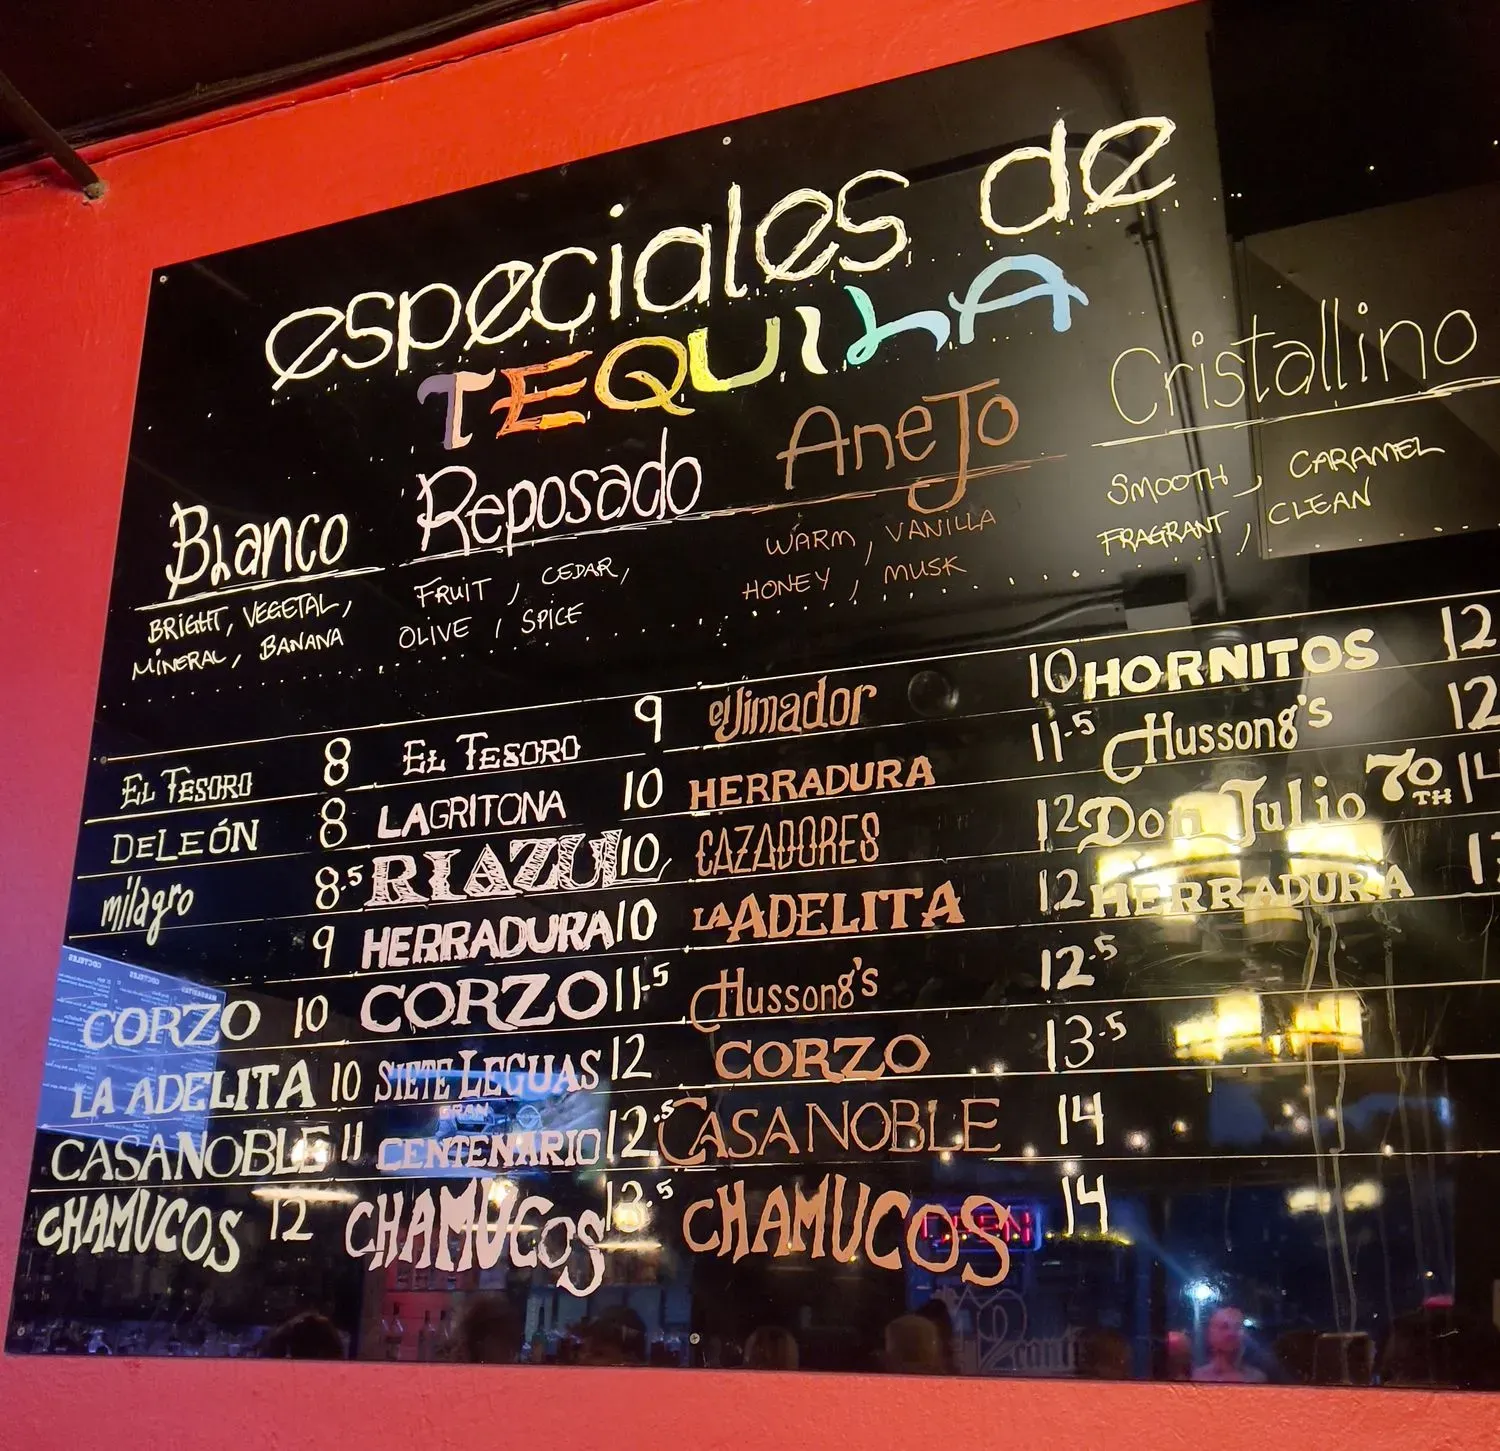 especiales de
TEQUILA
Blanco
BRIGHT, VEGETAL,
MINERAL, BANANA
EL TESORO 8
DELEÓN 8
milagro 8.5
9
CORZO 10
LA ADELITA 10
CASA NOBLE 11
CHAMUCOS 12
Reposado
FRUIT, CEDAR,
OLIVE, SPICE
EL TESORO 9
LA GRITONA 10
RIAZUL 10
HERRADURA 10
CORZO 11.5
SIETE LEGUAS 12
GRAN
CENTENARIO 12.5
CHAMUCOS 13.5
Anejo
WARM, VANILLA
HONEY, MUSK
el Jimador 10
HERRADURA 11.5
CAZADORES 12
LA ADELITA 12
Hussong's 12.5
CORZO 13.5
CASA NOBLE 14
CHAMUCOS 14
Cristallino
SMOOTH, CARAMEL
FRAGRANT, CLEAN
HORNITOS 12
Hussong's 12
Don Julio 70TH
HERRADURA
OPEN